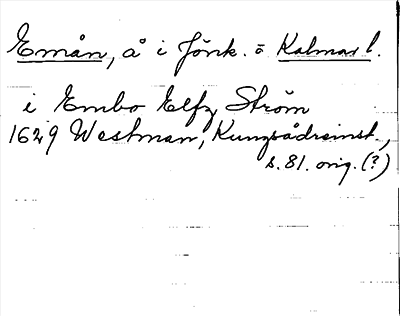 Emån, å i Jönk. o Kalmar l.
i Embo Elfz Ström
1629 Westman, Kungsådreinst.,
s. 81. orig. (?)